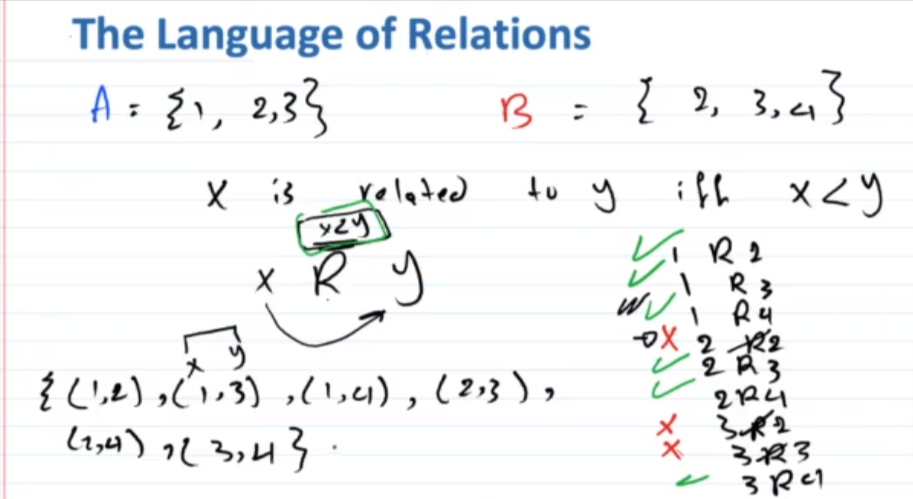 The Language of Relations
A = {1, 2,3} B = { 2, 3,4}
x is related to y iff x<y
x<y
x R y
x y
{(1,2),(1,3),(1,4),(2,3),
(2,4),(3,4}.
1 R 2
1 R 3
1 R 4
2 R 2
2 R 3
2 R 4
3 R 2
3 R 3
3 R 4